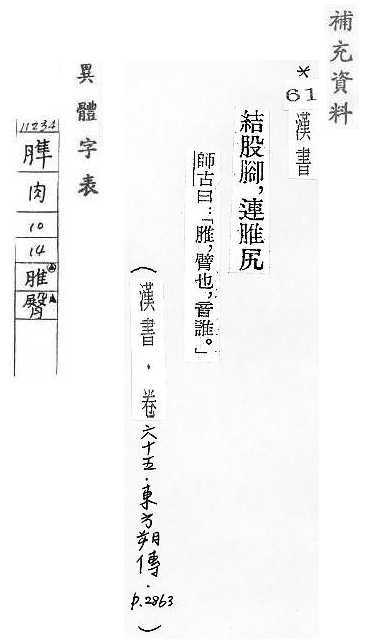 補充資料
*61 漢書
結股腳，連脽尻
師古曰：「脽，臀也，音誰。」
（漢書．卷六十五．東方朔傳．p.2863）
異體字表
11234
肉
10
14
脽
臀